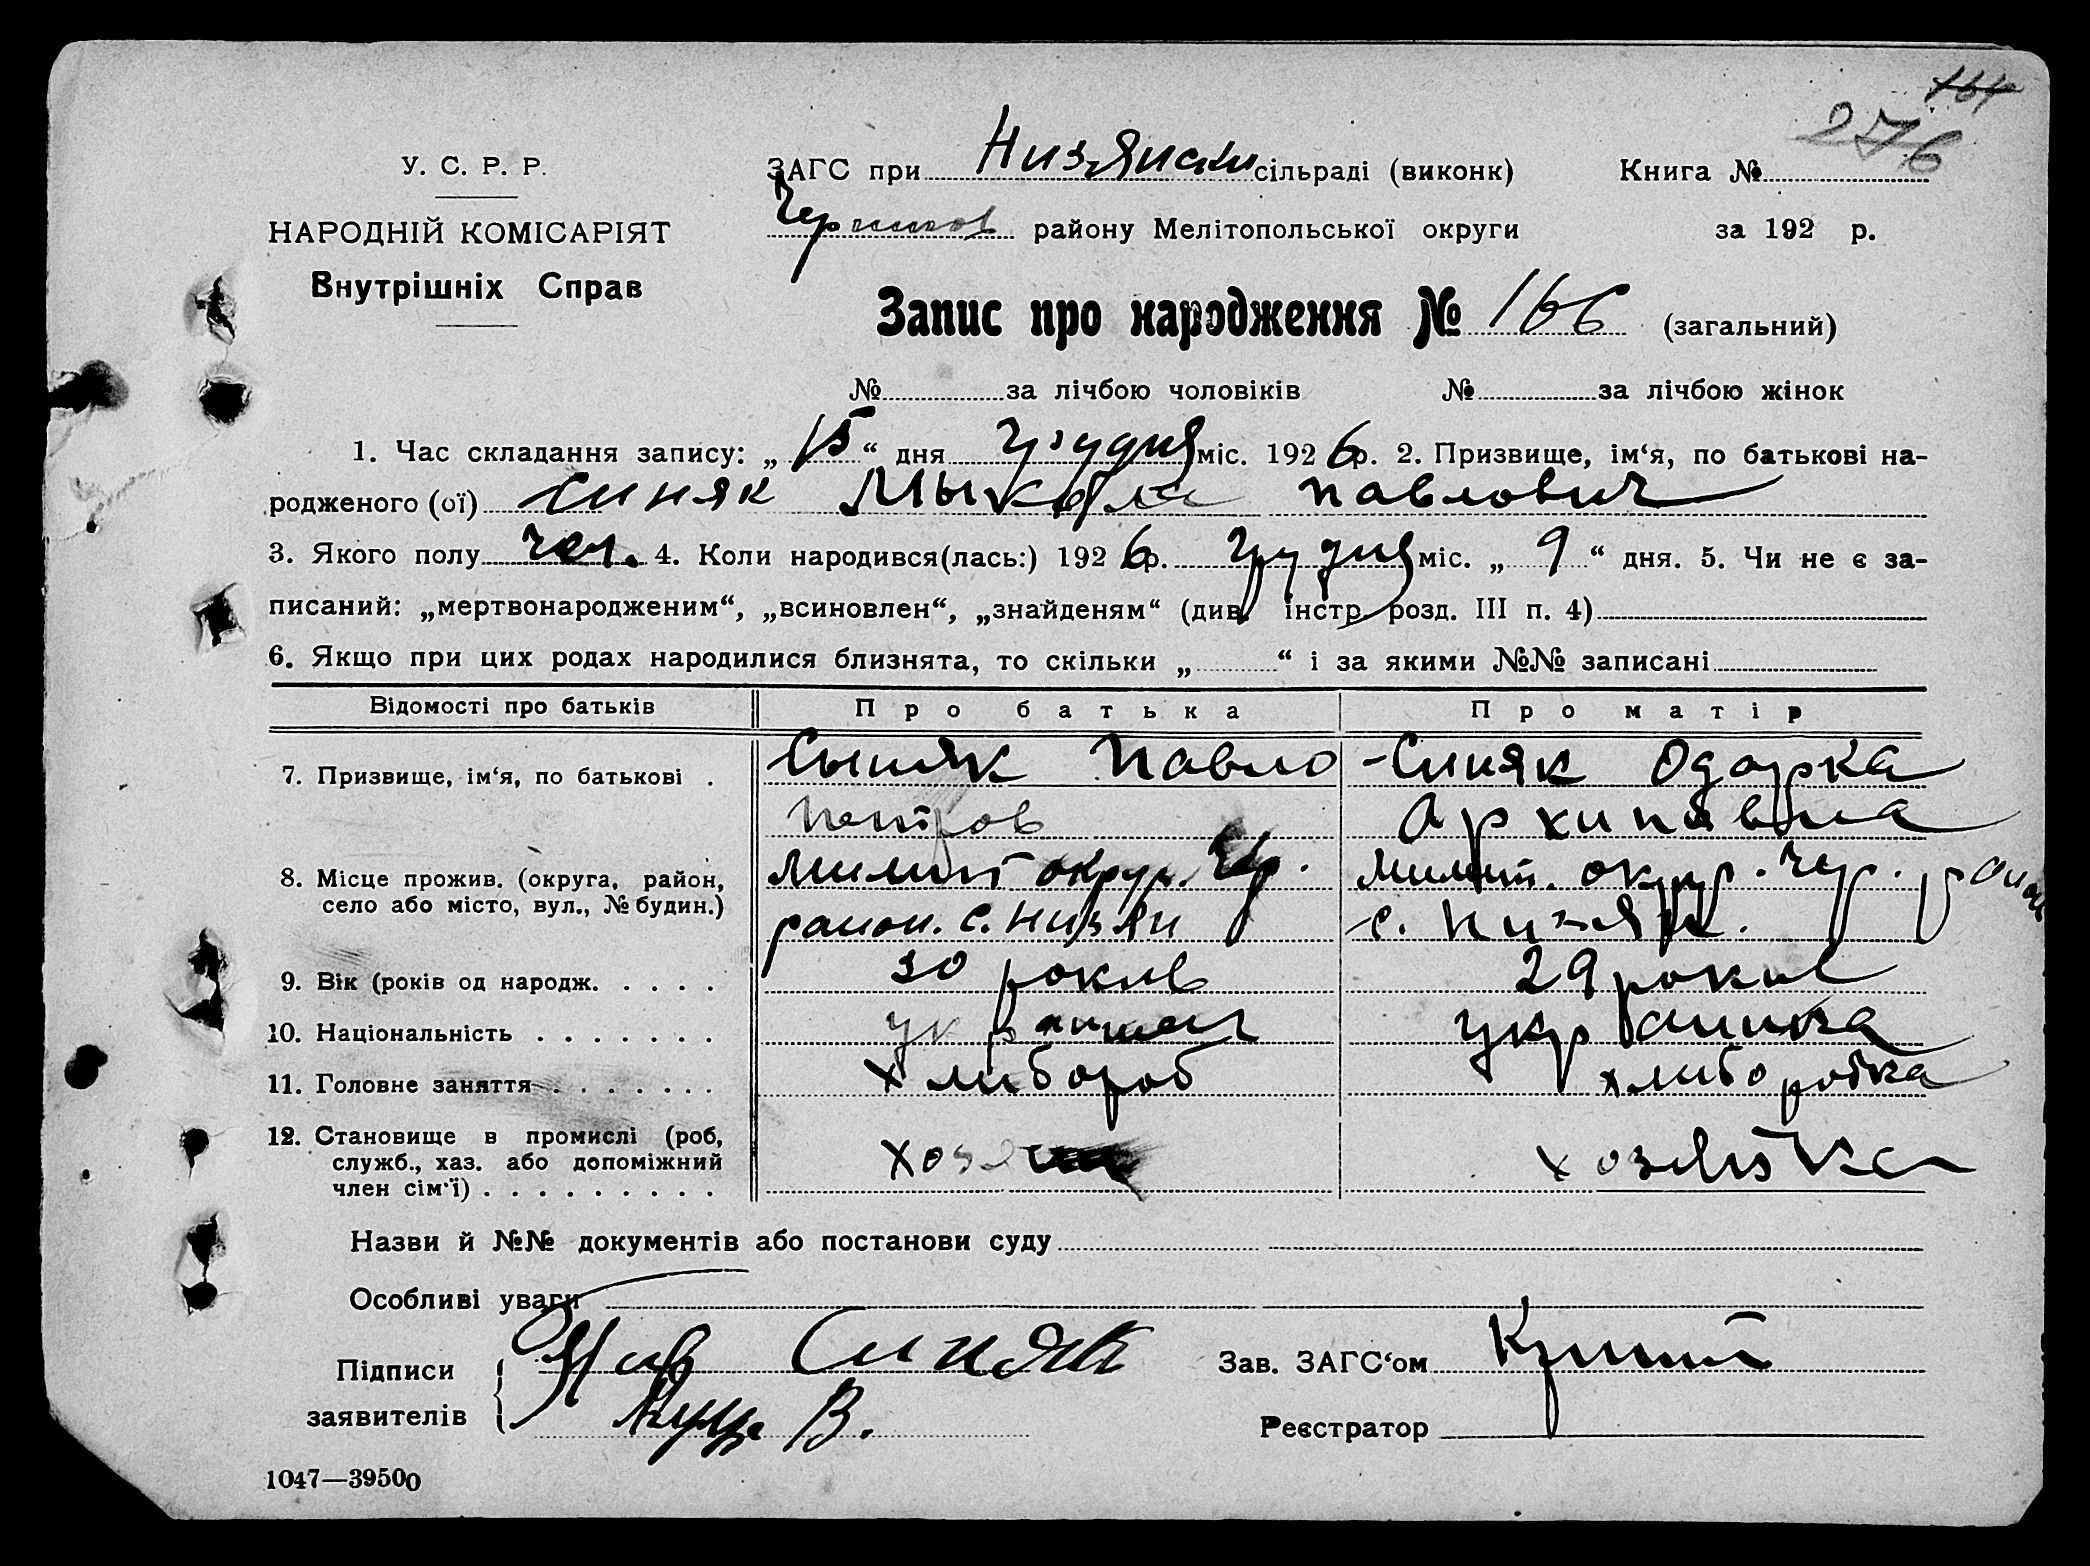 164
276
У. С. Р. Р.
НАРОДНІЙ КОМІСАРІЯТ
Внутрішніх Справ
ЗАГС при Низянский сільраді (виконк) Книга №
району Мелітопольської округи за 192 р.
Запис про народження № 166 (загальний)
№ за лічбою чоловіків № за лічбою жінок
1. Час складання запису: „ 15 “ дня Грудня міс. 192 6 р. 2. Призвище, ім‘я, по батькові на-
родженого (ої) Синяк Мыкола Павлович
3. Якого полу чол. 4. Коли народився(лась:) 192 6 р. Грудня міс. „ 9 “ дня. 5. Чи не є за-
писаний: „мертвонародженим“, „всиновлен“, „знайденям“ (див. інстр. розд. III п. 4)
6. Якщо при цих родах народилися близнята, то скільки „ “ і за якими №№ записані
Відомості про батьків Про батька Про матір
7. Призвище, ім‘я, по батькові . Сыняк Павло Синяк Одарка
Петров Архиповна
8. Місце прожив. (округа, район, Милит округ. Чер. Милит. округ. Чер. район
село або місто, вул., № будин.) район. с. Низяни с. Низян.
9. Вік (років од народж. . . . . 30 рокив 29 рокив
10. Національність . . . . . . . украинец украинка
11. Головне заняття . . . . . . . хлибороб хлиборобка
12. Становище в промислі (роб, хозяин хозяйка
служб., хаз. або допоміжний
член сім‘ї) . . . . . . . . .
Назви й №№ документів або постанови суду
Особливі уваги
Підписи Синяк Зав. ЗАГС‘ом
заявителів В. Реєстратор
1047—39500